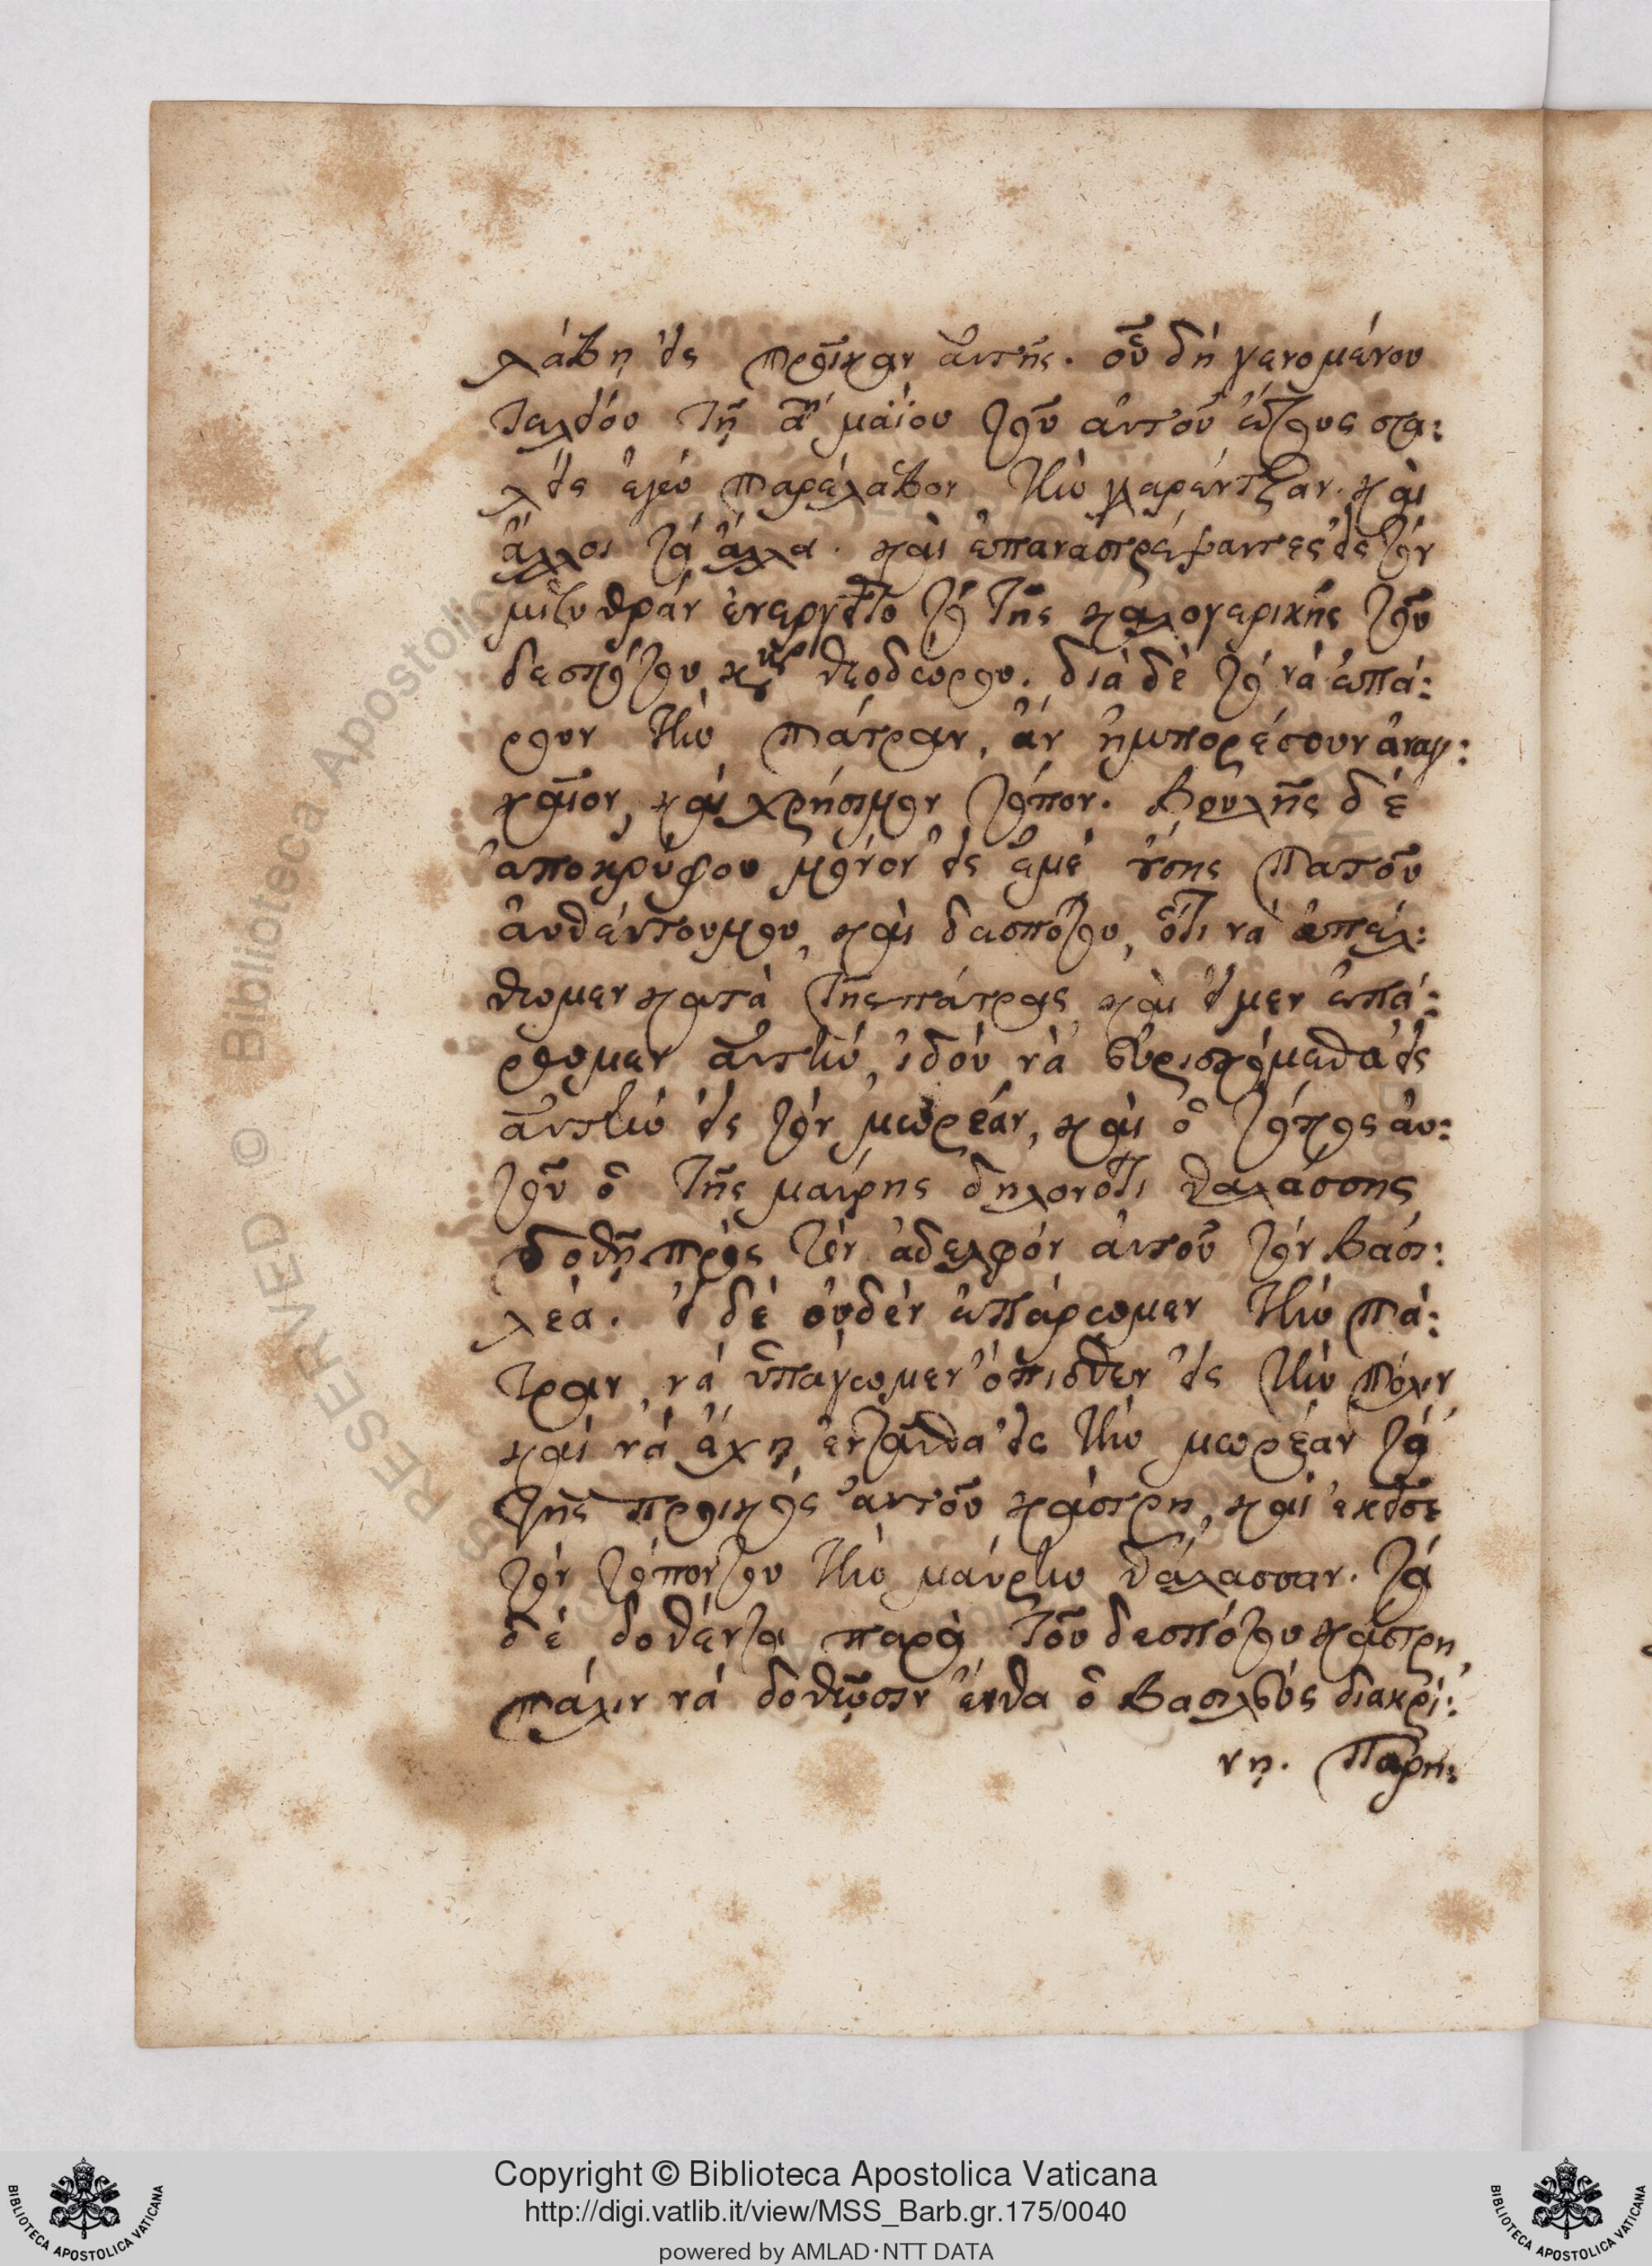 λάβη εἰς προῖκαν αὐτῆς. οὗ δὴ γενομένου
τελείου τῇ αῃ μαΐου τοῦ αὐτοῦ ἔτους στα:
λεὶς ἐγὼ παρέλαβον τὴν γλαρέντζαν. καὶ
ἄλλοι τὰ ἄλλα. καὶ ἐπαναστρέψαντες εἰς τὸν
μιζυθρὰν ἐνεργεῖτο τὸ τῆς καλογερικῆς τοῦ
δεσπότου κυρ θεοδώρου. διὰ δὲ τὸ νὰ ἐπά:
ρουν τὴν πάτραν, ἂν ἠμπορέσουν ἀναγ:
καῖον, καὶ χρήσιμον τόπον. βουλῆς δὲ
ἀποκρύφου μόνον εἰς ἐμὲ οὔσης παρ τοῦ
αὐθέντουμου, καὶ δεσπότου, ὅτι νὰ ἀπέλ:
θωμεν κατὰ τῆς πάτρας καὶ εἰ μεν ἐπά:
ρομεν αὐτὴν, ἰδοὺ νὰ εὑρισκόμεθα εἰς
αὐτὴν εἰς τὸν μωρέαν, καὶ ὁ τόπος αὐ:
τοῦ ὁ τῆς μαύρης δηλονότι θαλάσσης
δοθῇ πρὸς τὸν ἀδελφὸν αὐτοῦ τὸν βασι:
λέα. εἰ δὲ οὐδὲν ἐπάρωμεν τὴν πά:
τραν, νὰ ὑπάγωμεν ὄπισθεν εἰς τὴν πόλιν,
καὶ νὰ ἔχῃ ἐνταῦθα εἰς τὴν μωρέαν τὰ
τῆς προικὸς αὐτοῦ κάστρη, καὶ ἐκεῖσε
τὸν τόπον του τὴν μαύρην θάλασσαν. τὰ
δὲ δοθέντα παρὰ τοῦ δεσπότου κάστρη,
πάλιν νὰ δοθῶσιν ἔνθα ὁ βασιλεὺς διακρί:
νῃ.
Copyright © Biblioteca Apostolica Vaticana
http://digi.vatlib.it/view/MSS_Barb.gr.175/0040
powered by AMLAD·NTT DATA
BIBLIOTECA APOSTOLICA VATICANA
BIBLIOTECA APOSTOLICA VATICANA